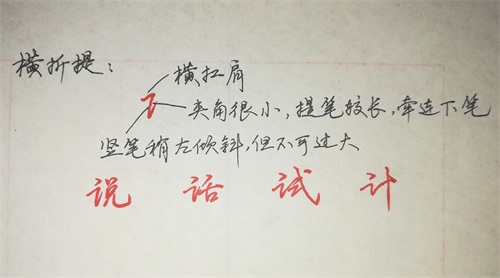 横折提：
横扛肩
夹角很小，提笔较长，牵连下笔
竖笔稍左倾斜，但不可过大
说 话 试 计